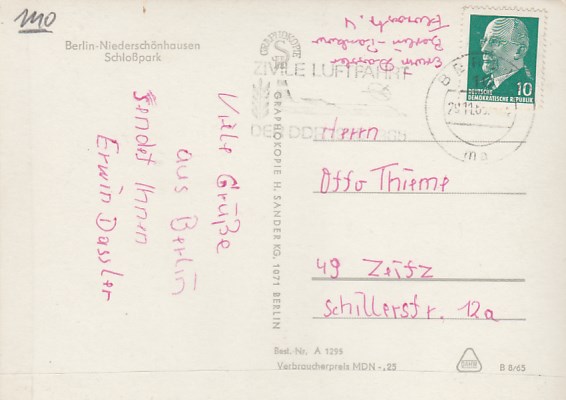 1110
Berlin-Niederschönhausen
Schloßpark
Viele Grüße
aus Berlin
sendet Ihnen
Erwin Dassler
GRAPHOKOPIE
GRAPHOKOPIE H. SANDER KG, 1071 BERLIN
Erwin Dassler
Berlin-Pankow
ZIVILE LUFTFAHRT
DER DDR
BERLIN
DEUTSCHE
DEMOKRATISCHE REPUBLIK
10
Herrn
Otto Thieme
49 Zeitz
Schillerstr. 12a
Best.-Nr. A 1295
Verbraucherpreis MDN -,25
B 8/65